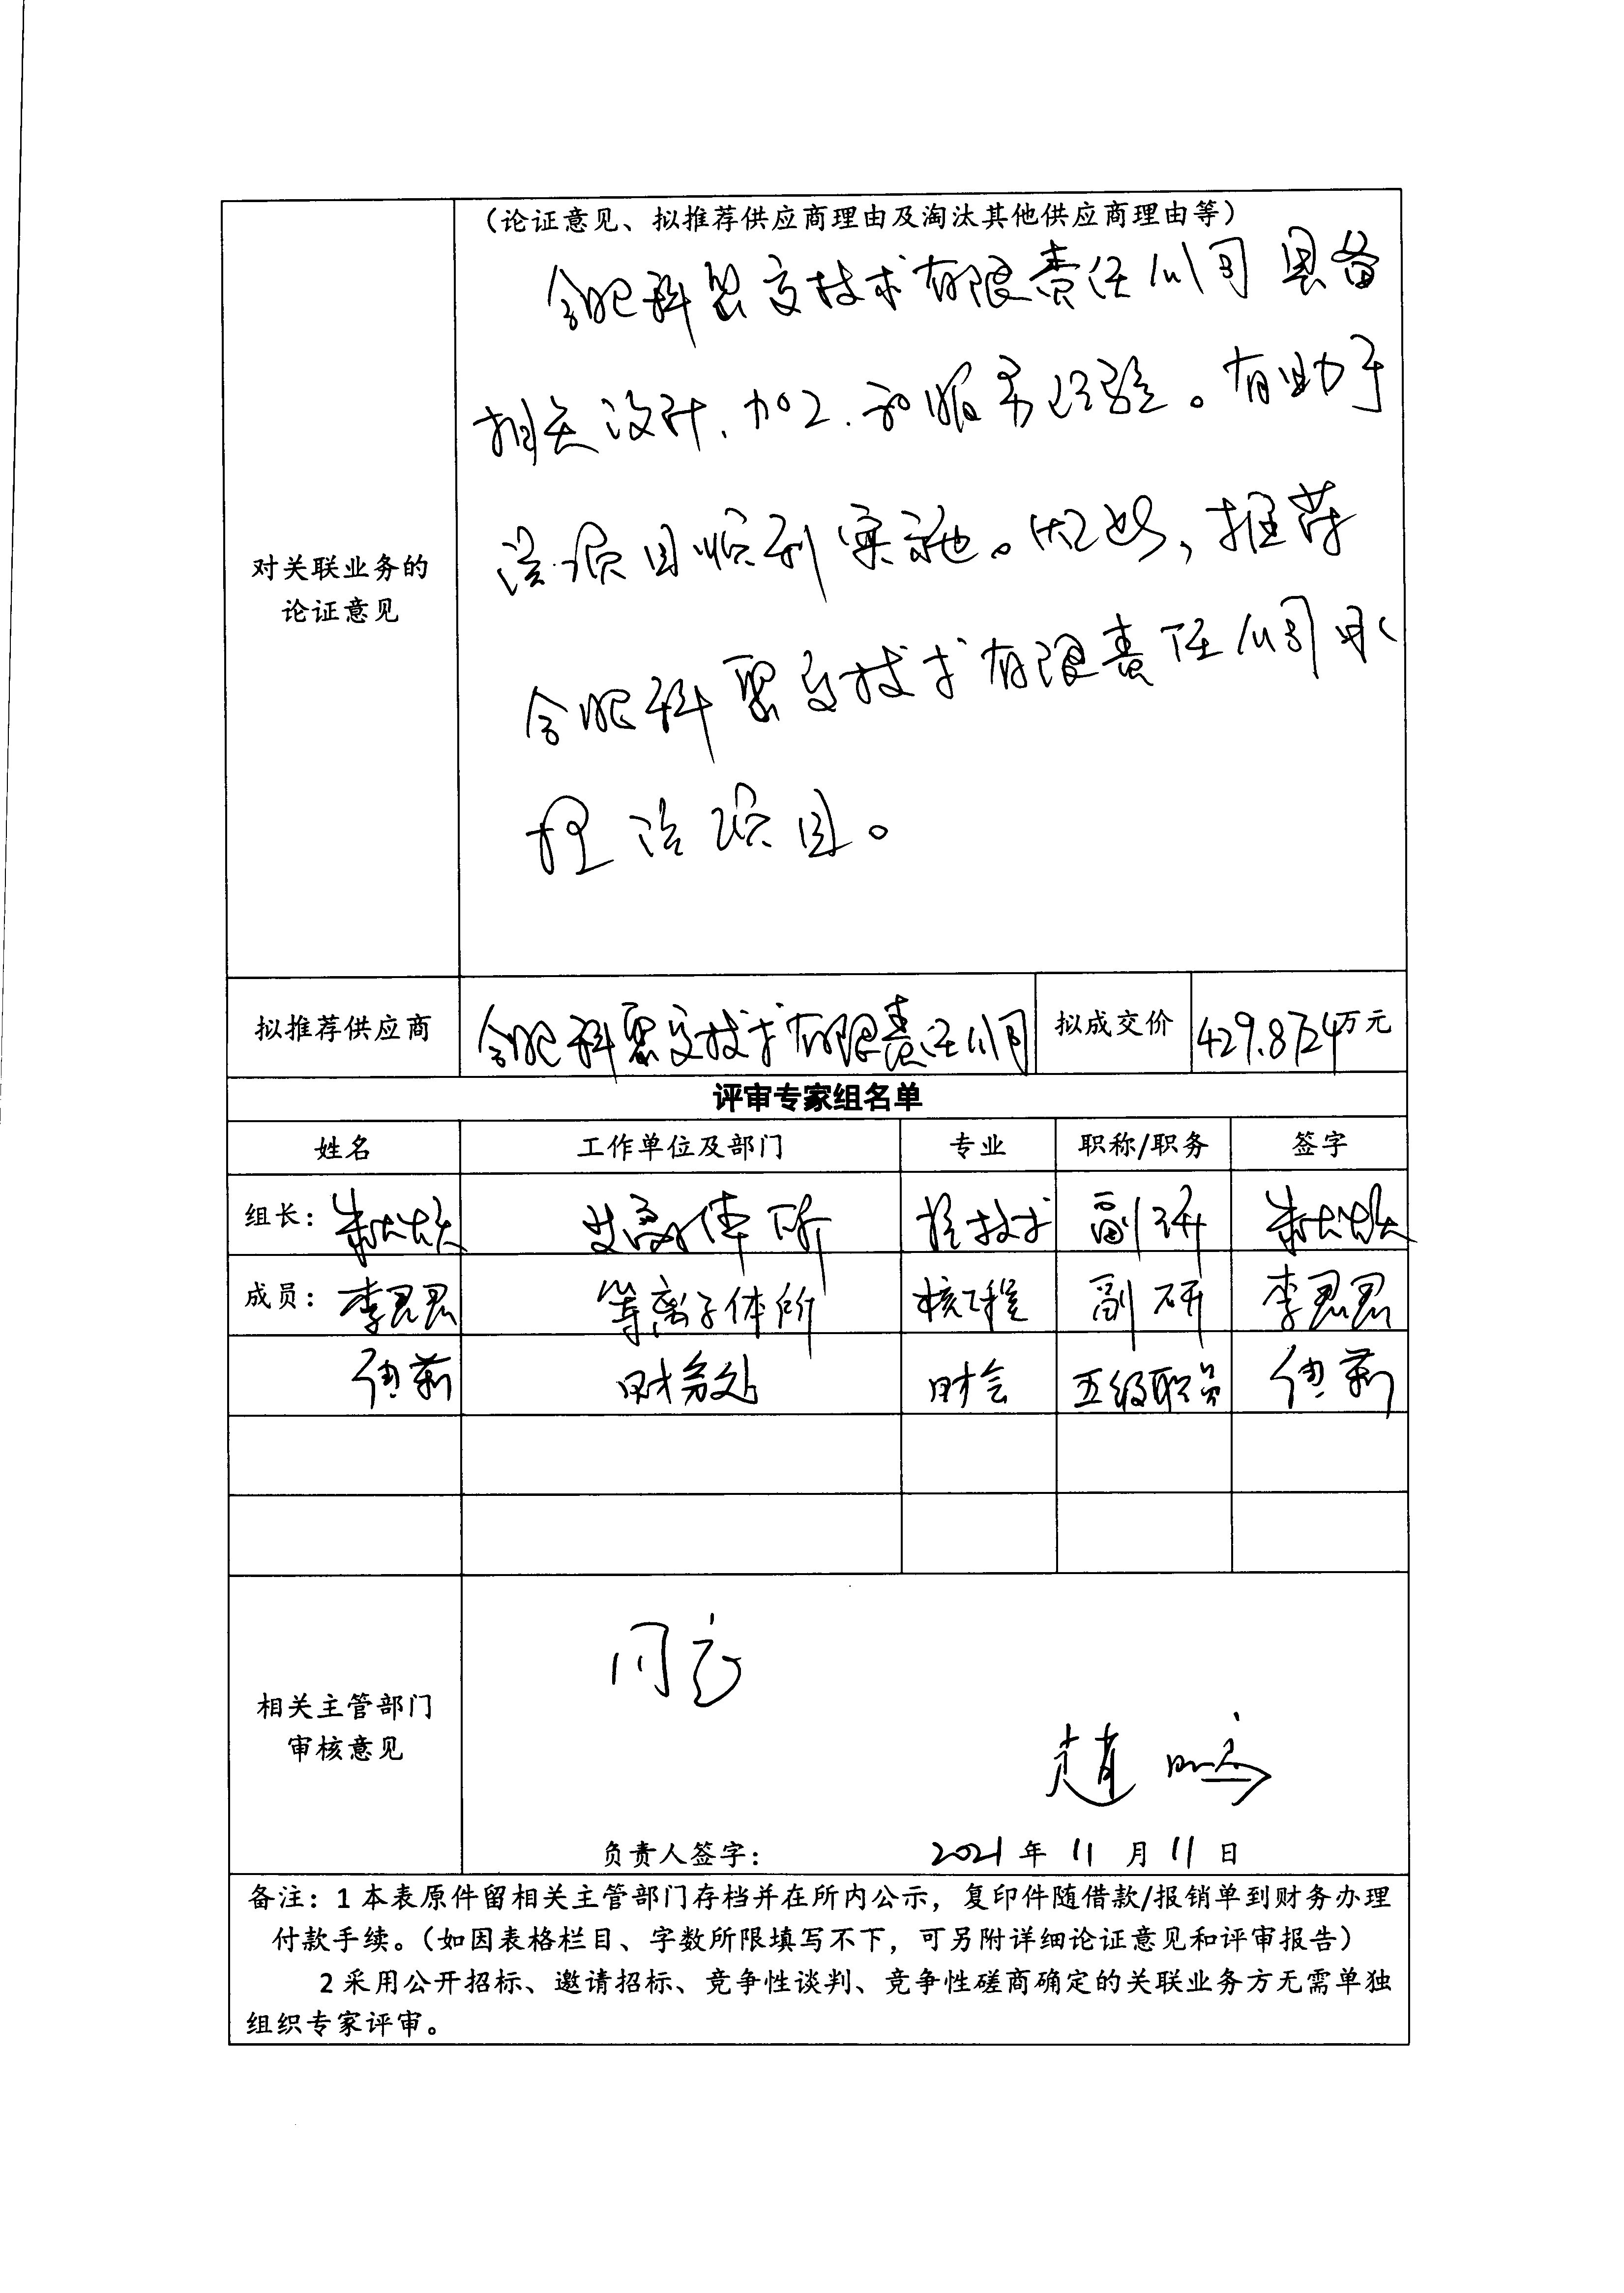 （论证意见、拟推荐供应商理由及淘汰其他供应商理由等）
合肥科聚高技术有限责任公司具备
相关设计、加工、和服务经验。有助于
该项目顺利实施。因此，推荐
对关联业务的
论证意见
合肥科聚高技术有限责任公司承
担该项目。
拟推荐供应商 合肥科聚高技术有限责任公司 拟成交价 429.8724万元
评审专家组名单
姓名 工作单位及部门 专业 职称/职务 签字
组长： 所 技术 副研
成员：李思思 等离子体所 核工程 副研 李思思
财务处 财会 五级职员
同意
相关主管部门
审核意见
赵
负责人签字： 2021年11月11日
备注：1 本表原件留相关主管部门存档并在所内公示，复印件随借款/报销单到财务办理
付款手续。（如因表格栏目、字数所限填写不下，可另附详细论证意见和评审报告）
2 采用公开招标、邀请招标、竞争性谈判、竞争性磋商确定的关联业务方无需单独
组织专家评审。